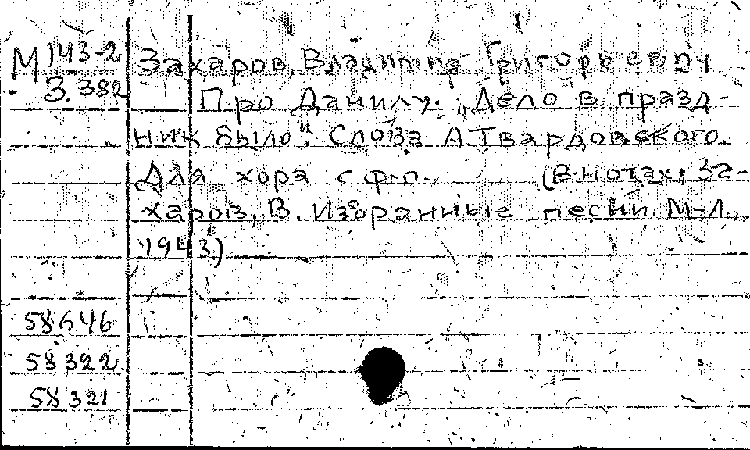 М 143-2
З. 382
Захаров, Владимир Григорьевич
Про Данилу. „Дело в празд-
ник было". Слова А Твардовского.
Для хора с ф-п. (В нотах: За-
харов, В. Избранные песни. М-Л.,
1943.)
58646
58322
58321